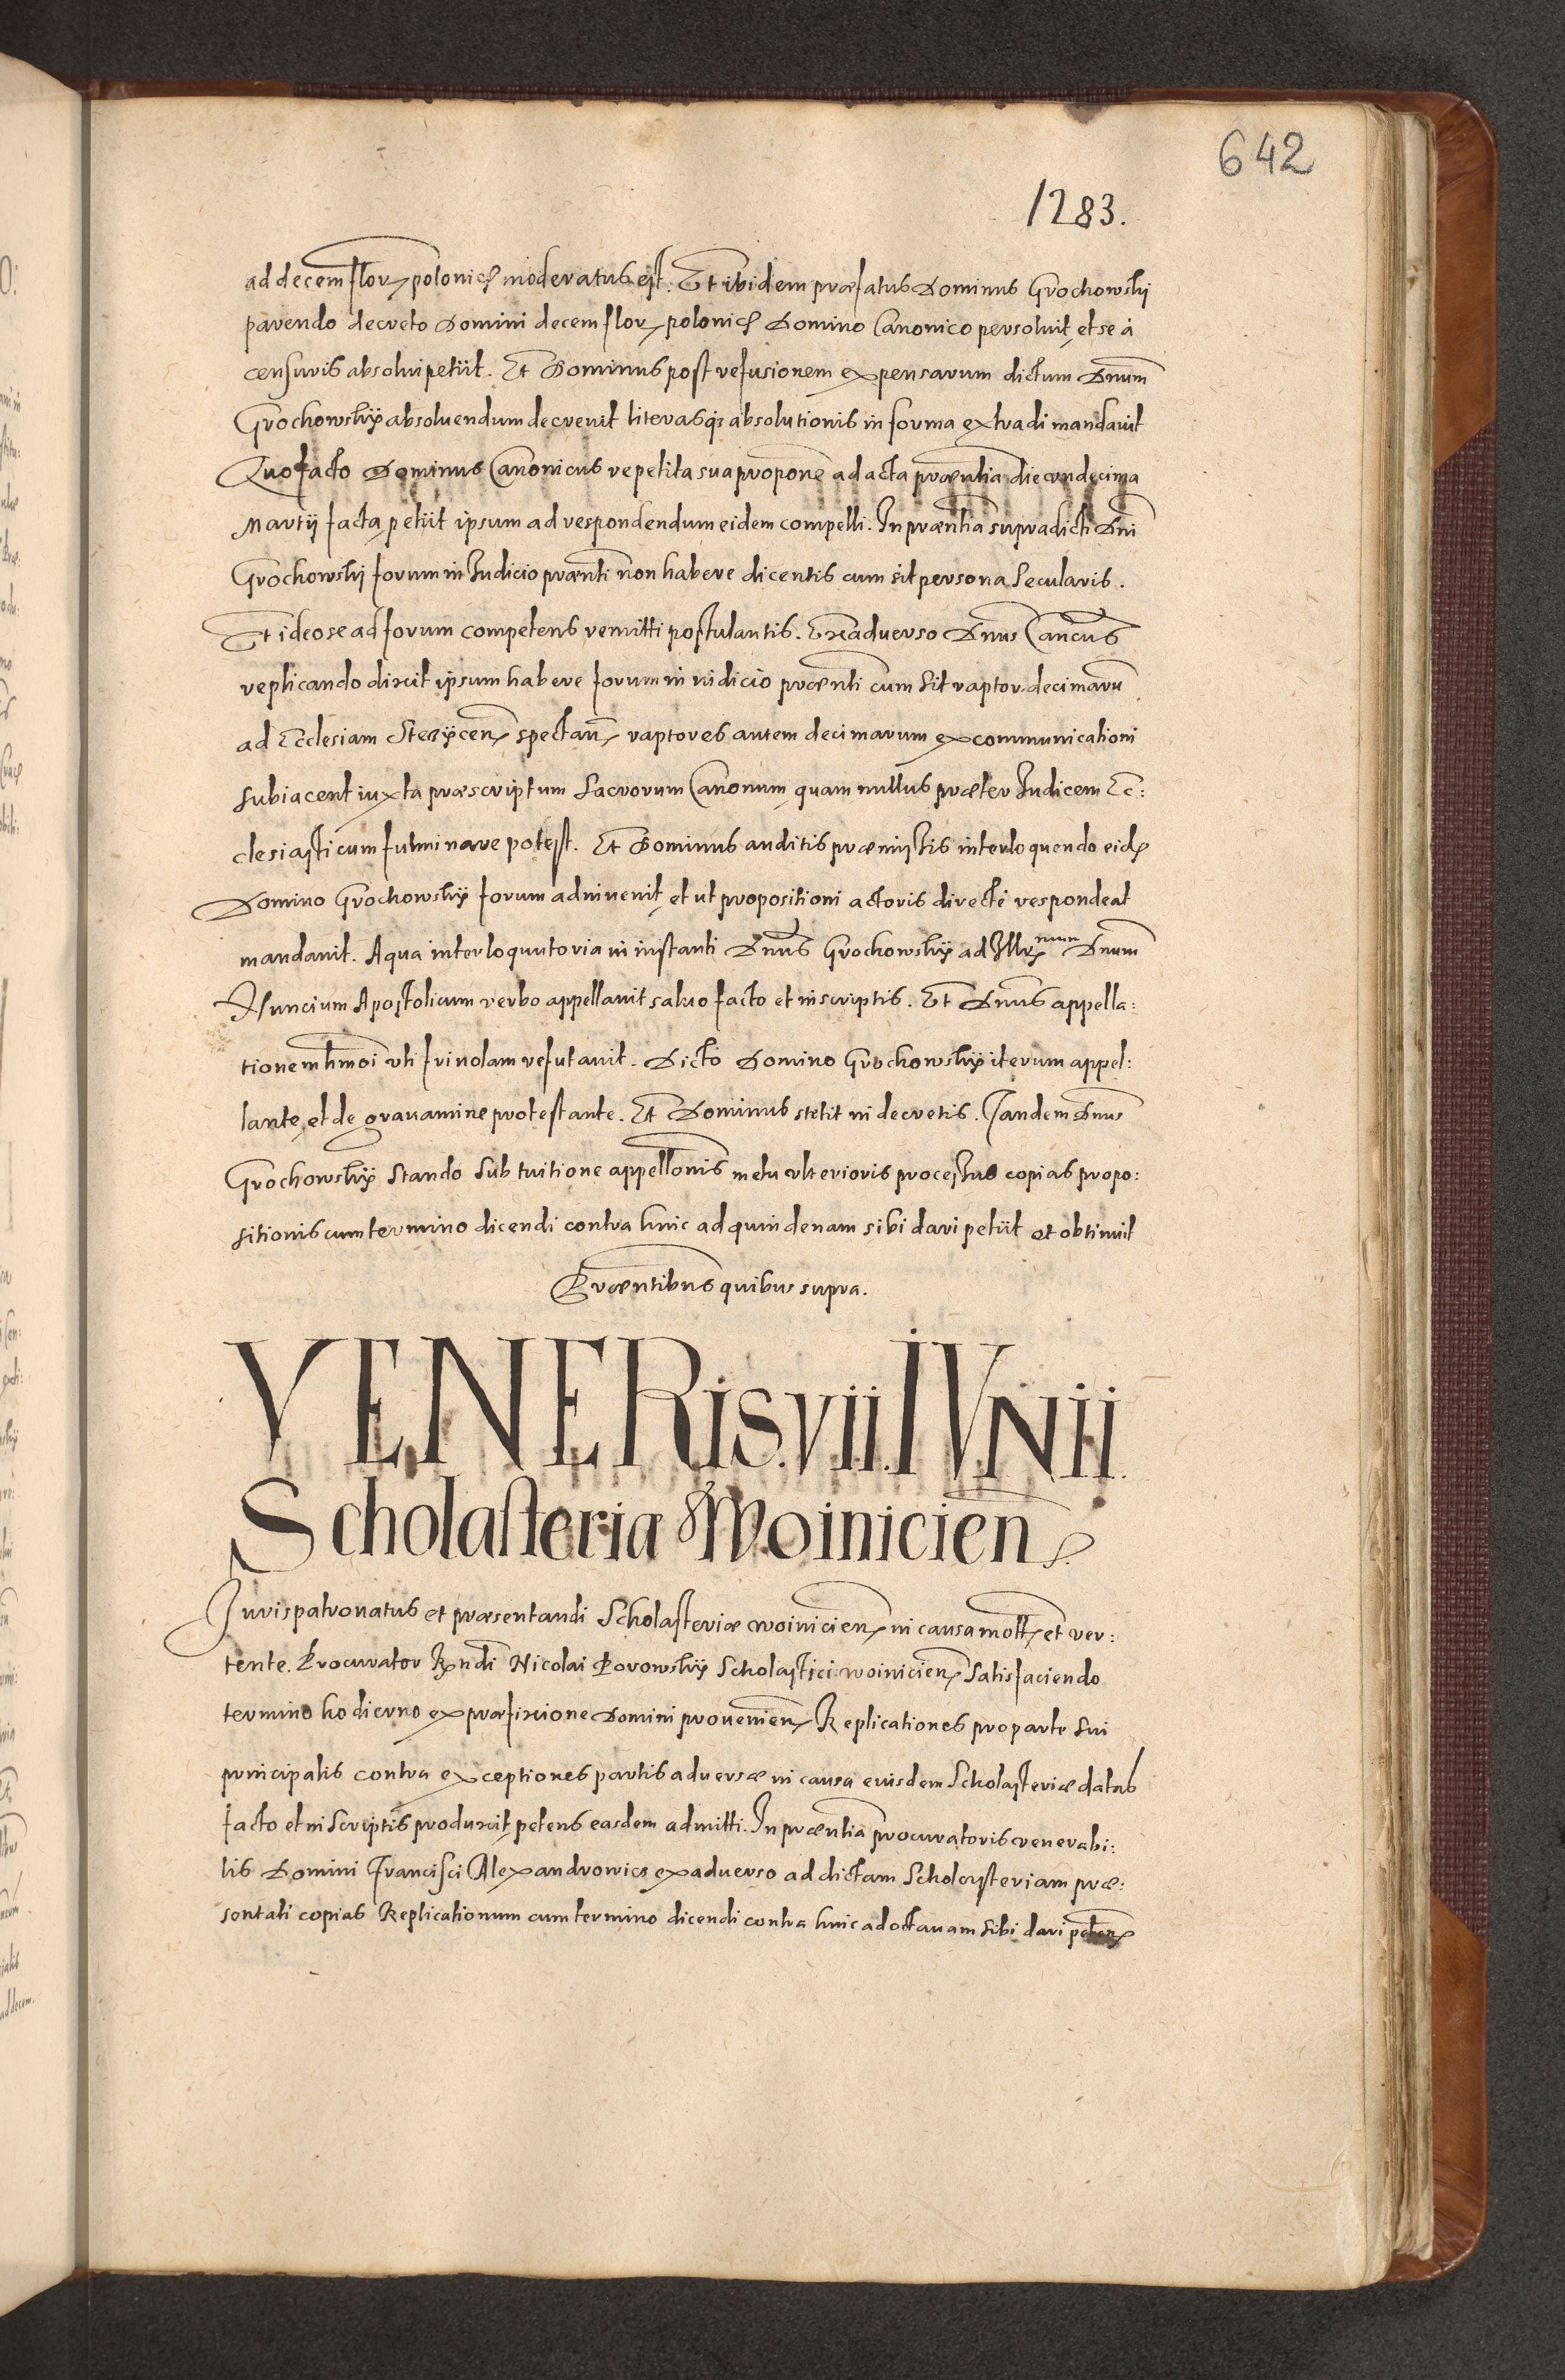 642
1283.
ad decem flor. polonic. moderatus est. Et ibidem præfatus Dominus Grochowsky
parendo decreto Domini decem flor. polonic. Domino Canonico persoluit, et se à
censuris absolui petiit. Et Dominus post refusionem expensarum dictum Dnum
Grochowskÿ absoluendum decreuit literasq3 absolutionis in forma extradi mandauit
Quo facto Dominus Canonicus repetita sua propone ad acta præntia die vndecima
Martij facta, petiit ipsum ad respondendum eidem compelli. In præntia supradicti Dni
Grochowsky forum in Iudicio prænti non habere dicentis cum sit persona secularis.
Et ideo se ad forum competens remitti postulantis. Ex aduerso Dnus Cancus
replicando dixit ipsum habere forum in iudicio prænti cum sit raptor decimarū
ad Ecclesiam Stezÿcen. spectan. raptores autem decimarum excommunicationi
subiacent iuxta præscriptum sacrorum Canonum, quam nullus præter Iudicem Ec:
clesiasticum fulminare potest. Et Dominus auditis præmissis interloquendo eidē
Domino Grochowskÿ forum adinuenit, et ut propositioni actoris directè respondeat
mandauit. A qua interloquutoria in instanti Dnus Grochowskÿ ad Illr̄mum Dnum
Nuncium Apostolicum verbo appellauit saluo facto et in scriptis. Et Dnus appella:
tionem hmoi vti friuolam refutauit. Dicto Domino Grochowskÿ iterum appel:
lante, et de grauamine protestante. Et Dominus stetit in decretis. Tandem Dnus
Grochowskÿ stando sub tuitione appellonis metu vlterioris processus copias propo:
sitionis cum termino dicendi contra hinc ad quindenam sibi dari petiit et obtinuit
Præntibus quibus supra.
VENERIS. VII. IVNII.
Scholasteria Woinicien.
Iuris patronatus et præsentandi Scholasteriæ woinicien. in causa mott. et ver:
tente. Procurator Rndi Nicolai Borowskÿ Scholastici woinicien. Satisfaciendo
termino hodierno ex præfixione Domini prouenien. Replicationes pro parte sui
principalis contra exceptiones partis aduersæ in causa eiusdem Scholasteriæ datas
facto et in scriptis produxit, petens easdem admitti. In præntia procuratoris venerabi:
lis Domini Francisci Alexandrowicz ex aduerso ad dictam Scholasteriam præ:
sentati copias Replicationum cum termino dicendi contra hinc ad octauam sibi dari peten.